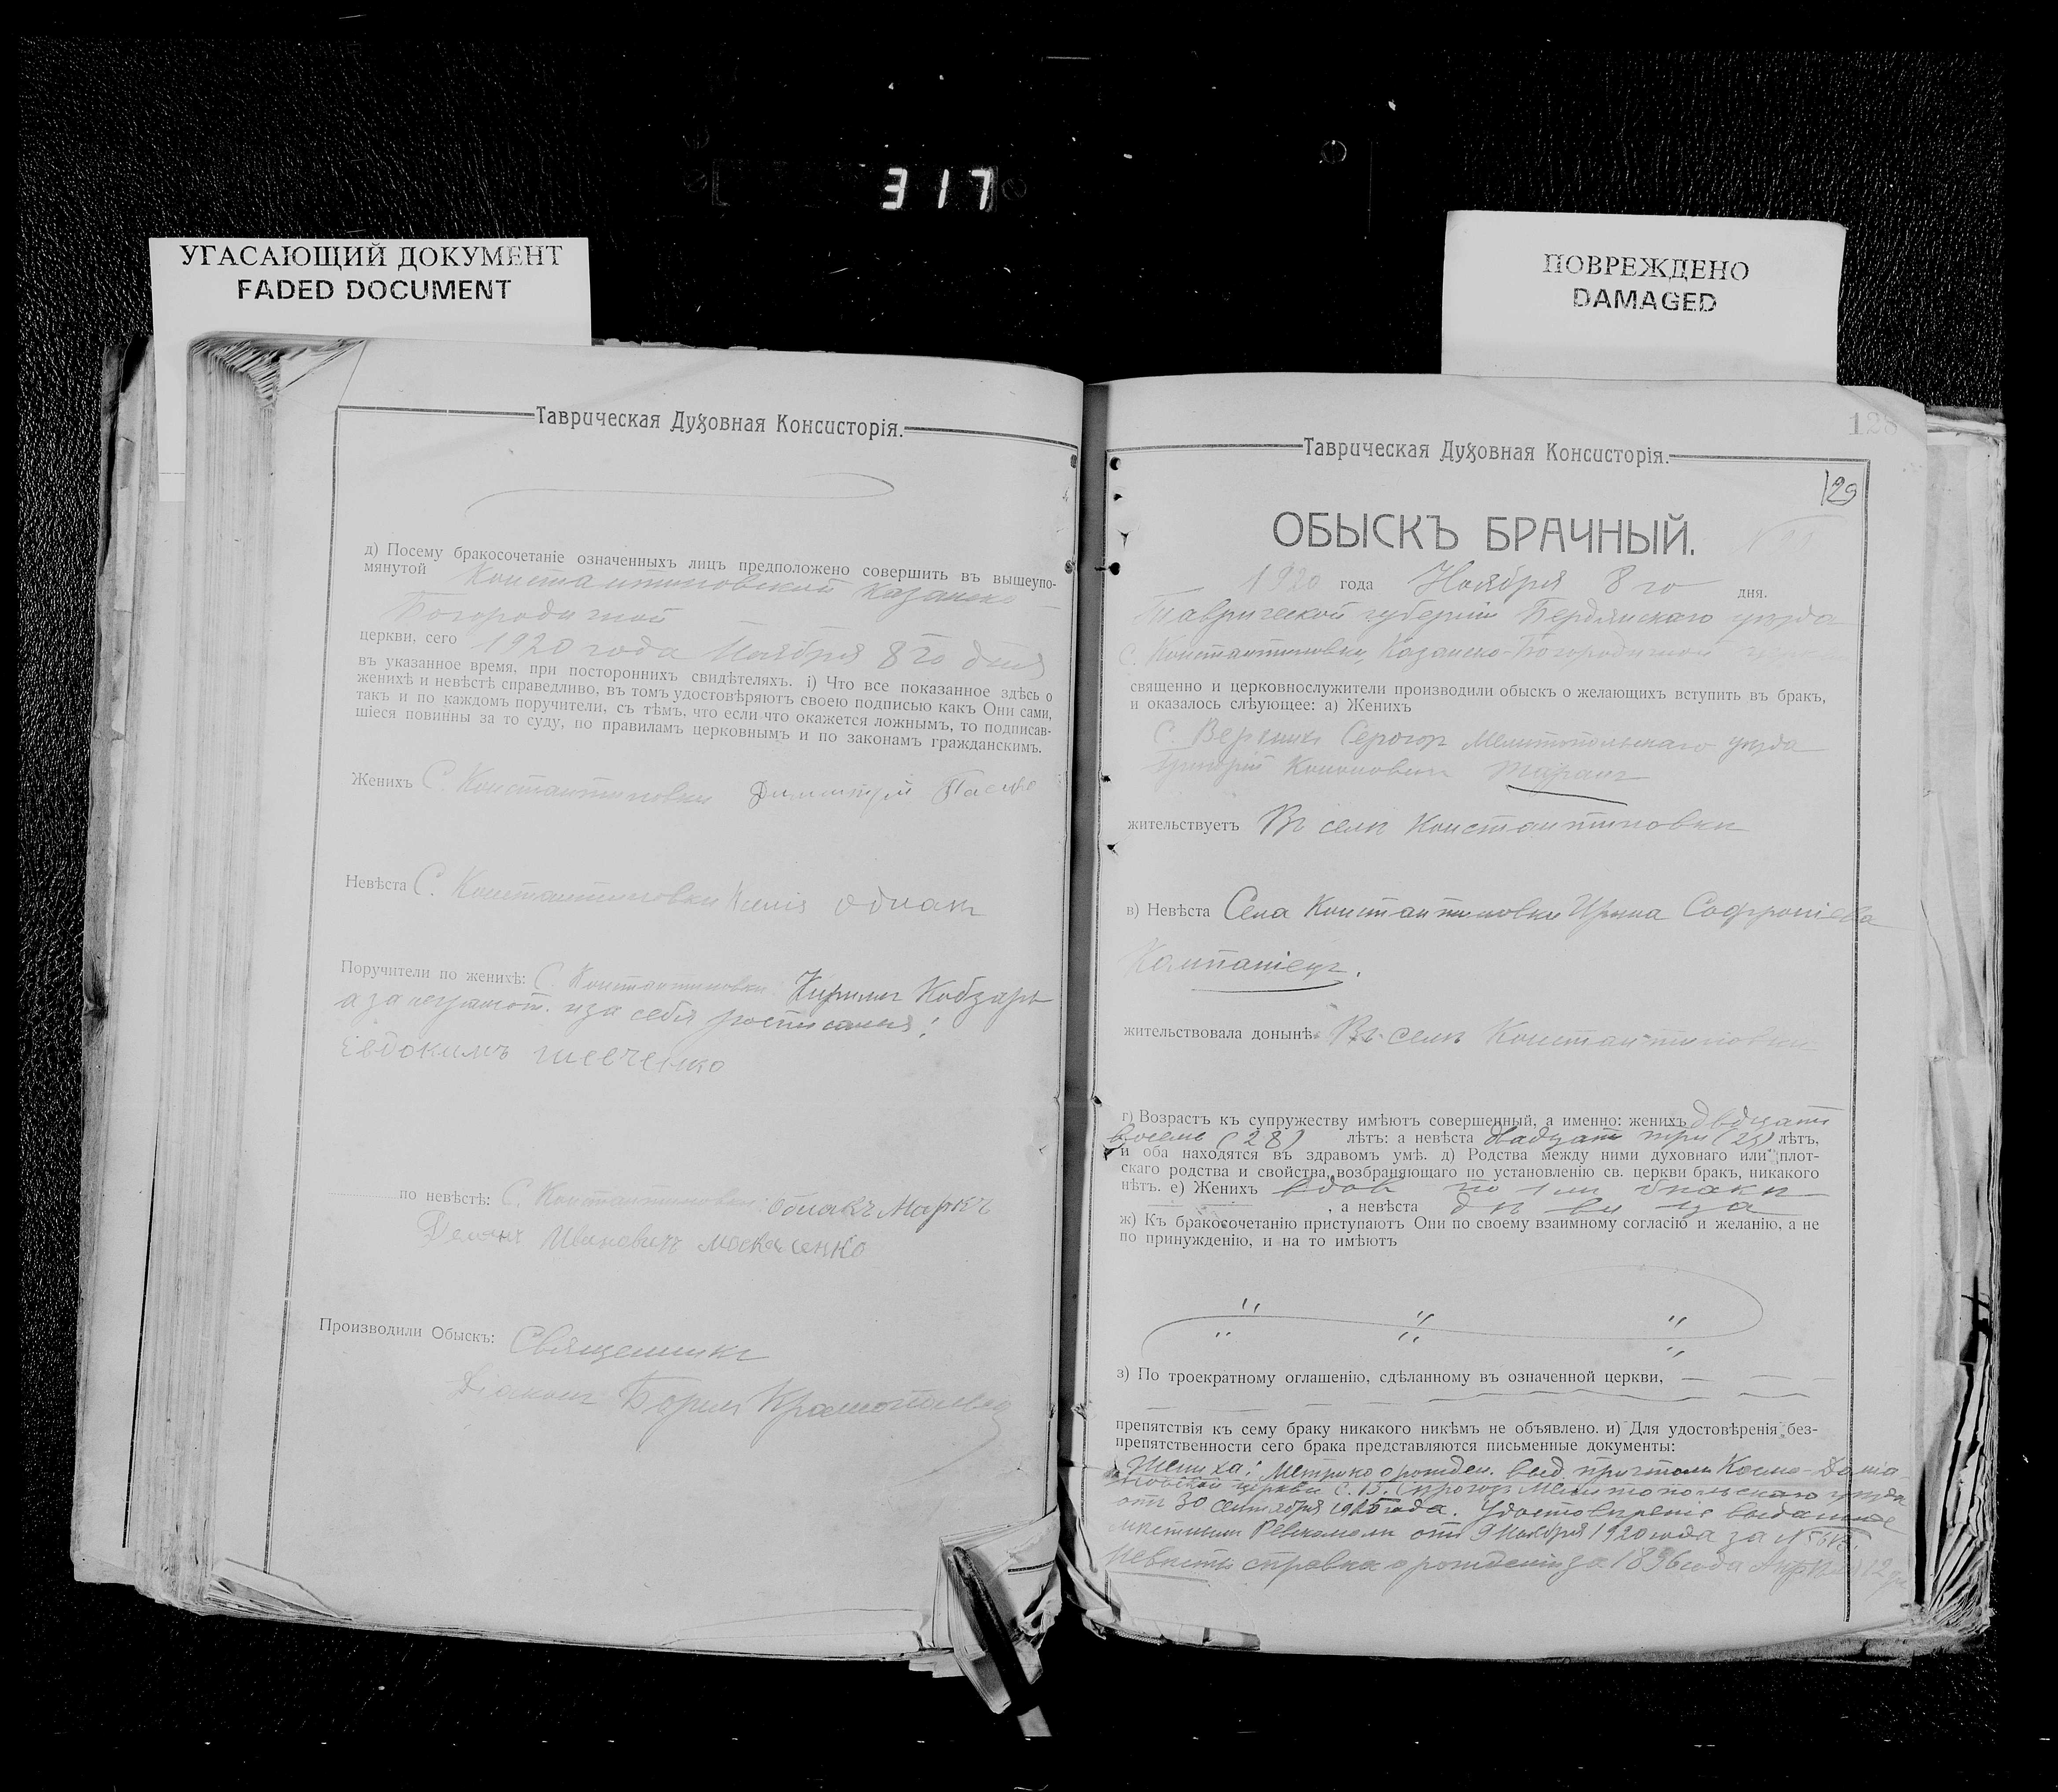 317
УГАСАЮЩИЙ ДОКУМЕНТ
FADED DOCUMENT
ПОВРЕЖДЕНО
DAMAGED
Таврическая Духовная Консисторія.
д) Посему бракосочетаніе означенныхъ лицъ предположено совершить въ вышеупо-
мянутой Константиновской Казанско
Богородичной
церкви, сего 1920 года Ноября 8го дня
въ указанное время, при постороннихъ свидѣтеляхъ. і) Что все показанное здѣсь о
женихѣ и невѣстѣ справедливо, въ томъ удостовѣряютъ своею подписью какъ Они сами,
такъ и по каждомъ поручители, съ тѣмъ, что если что окажется ложнымъ, то подписав-
шіеся повинны за то суду, по правиламъ церковнымъ и по законамъ гражданскимъ.
Женихъ С. Константиновки Димитрій
Невѣста С. Константиновки Однак
Поручители по женихѣ: С. Константиновки Кирилъ Кобзарь
а за неграмот. и за себя росписался:
Евдокимъ шевченко
по невѣстѣ: С. Константиновки: однакъ Маркъ
Ивановичъ
Производили Обыскъ: Священникъ
Діаконъ Борисъ
Таврическая Духовная Консисторія.
128
129
ОБЫСКЪ БРАЧНЫЙ.
1920 года Ноября 8го дня.
Таврической губерніи Бердянскаго уѣзда
С. Константиновки, Казанско-Богородичной церкви
священно и церковнослужители производили обыскъ о желающихъ вступить въ бракъ,
и оказалось слѣующее: а) Женихъ
С. Верхнихъ Серогоз Мелитопольскаго уѣзда
Григорій Кононовъ Таранъ
жительствуетъ Въ селѣ Константиновки
в) Невѣста Села Константиновки Ирина Софроніева
Компаніецъ.
жительствовала донынѣ Въ селѣ Константиновки
г) Возрастъ къ супружеству имѣютъ совершенный, а именно: женихъ двдцать
восемь (28) лѣтъ: а невѣста двадцать три (23) лѣтъ,
и оба находятся въ здравомъ умѣ. д) Родства между ними духовнаго или плот-
скаго родства и свойства, возбраняющаго по установленію св. церкви бракъ, никакого
нѣтъ. е) Женихъ вдов по 1 м бракѣ
, а невѣста дѣвица
ж) Къ бракосочетанію приступаютъ Они по своему взаимному согласію и желанію, а не
по принужденію, и на то имѣютъ
з) По троекратному оглашенію, сдѣланному въ означенной церкви,
препятствія къ сему браку никакого никѣмъ не объявлено. и) Для удостовѣренія без-
препятственности сего брака представляются письменные документы:
Жениха: Метрика о рожден. выд. причтомъ Космо-Даміа-
новской церкви С. В. Серогоз Мелитопольскаго уѣзда
отъ 30 сентября года. Удостовѣреніе выданное
мѣстнымъ Ревкомомъ отъ 9 Ноября 1920 года за №
Невѣсты справка о рожденіи за 1896 года Апрѣля 12 дня